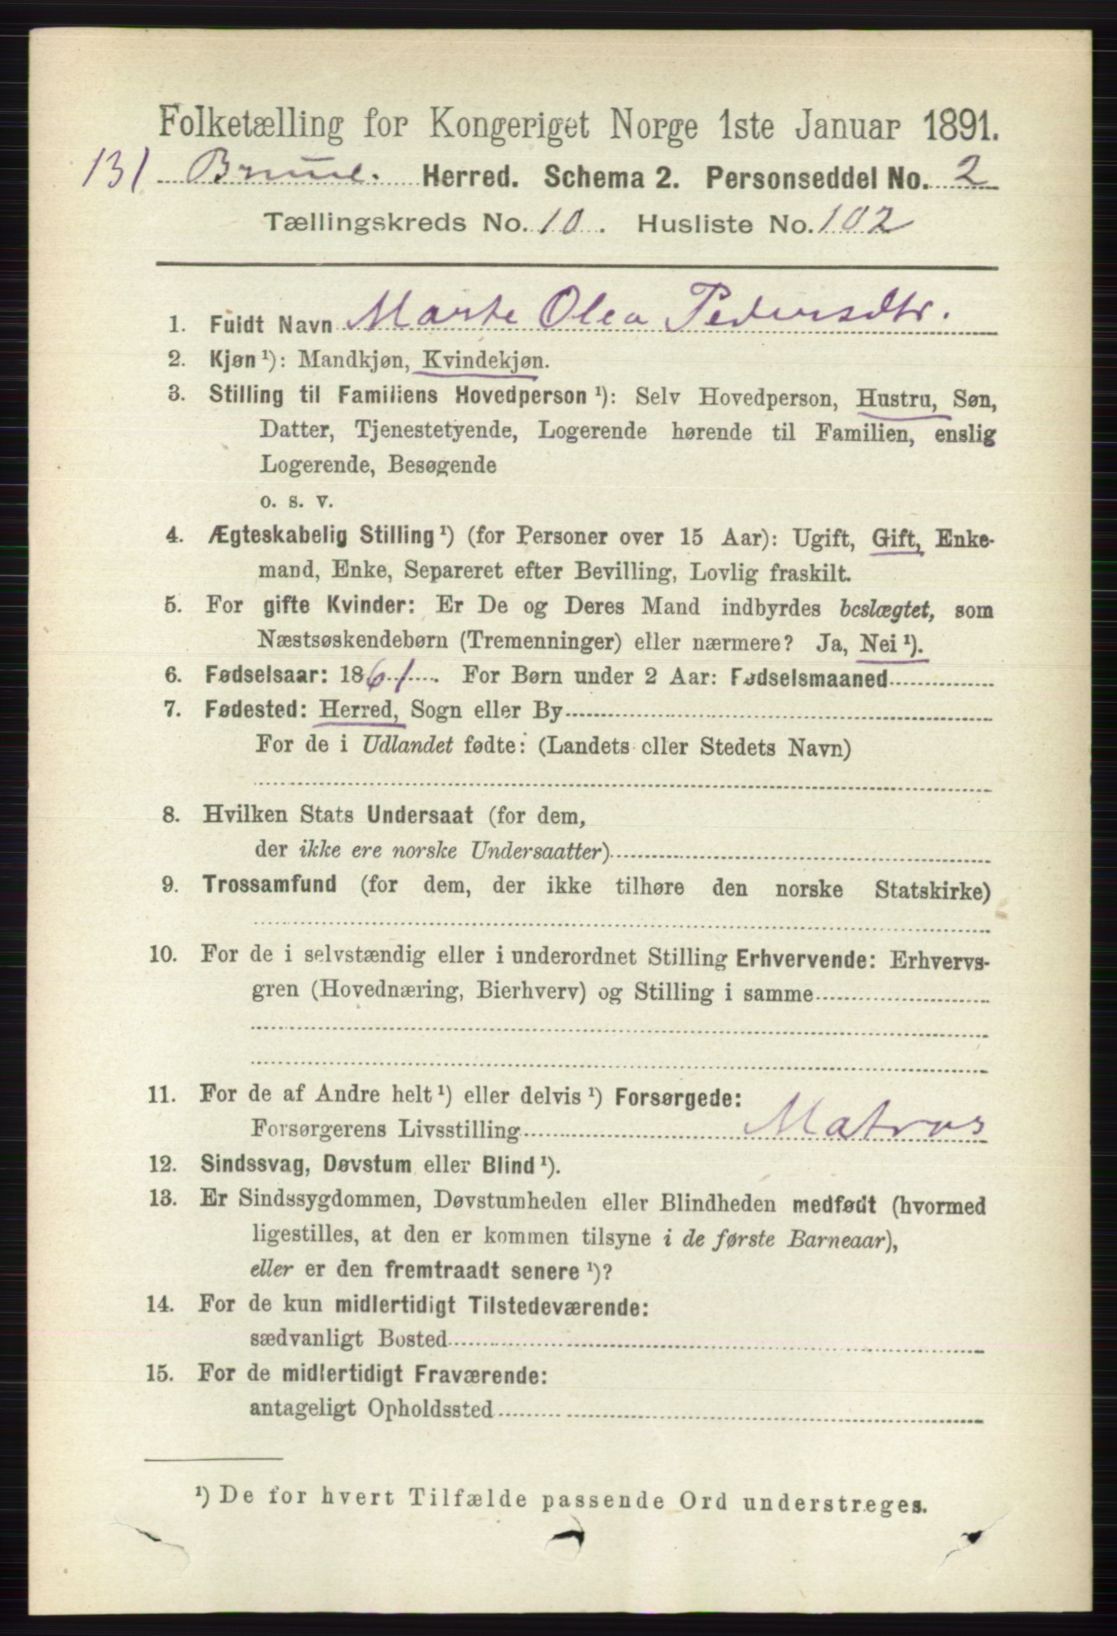 Folketælling for Kongeriget Norge 1ste Januar 1891.
131 Brunl. Herred. Schema 2. Personseddel No. 2
Tællingskreds No. 10. Husliste No. 102
1. Fuldt Navn Marte Olea Pedersdtr.
2. Kjøn ¹): Mandkjøn, Kvindekjøn.
3. Stilling til Familiens Hovedperson ¹): Selv Hovedperson, Hustru, Søn,
Datter, Tjenestetyende, Logerende hørende til Familien, enslig
Logerende, Besøgende
o. s. v.
4. Ægteskabelig Stilling ¹) (for Personer over 15 Aar): Ugift, Gift, Enke-
mand, Enke, Separeret efter Bevilling, Lovlig fraskilt.
5. For gifte Kvinder: Er De og Deres Mand indbyrdes beslægtet, som
Næstsøskendebørn (Tremenninger) eller nærmere? Ja, Nei ¹).
6. Fødselsaar: 1861. For Børn under 2 Aar: Fødselsmaaned
7. Fødested: Herred, Sogn eller By
For de i Udlandet fødte: (Landets eller Stedets Navn)
8. Hvilken Stats Undersaat (for dem,
der ikke ere norske Undersaatter)
9. Trossamfund (for dem, der ikke tilhøre den norske Statskirke)
10. For de i selvstændig eller i underordnet Stilling Erhvervende: Erhvervs-
gren (Hovednæring, Bierhverv) og Stilling i samme
11. For de af Andre helt ¹) eller delvis ¹) Forsørgede:
Forsørgerens Livsstilling Matros
12. Sindssvag, Døvstum eller Blind ¹).
13. Er Sindssygdommen, Døvstumheden eller Blindheden medfødt (hvormed
ligestilles, at den er kommen tilsyne i de første Barneaar),
eller er den fremtraadt senere ¹)?
14. For de kun midlertidigt Tilstedeværende:
sædvanligt Bosted
15. For de midlertidigt Fraværende:
antageligt Opholdssted
¹) De for hvert Tilfælde passende Ord understreges.